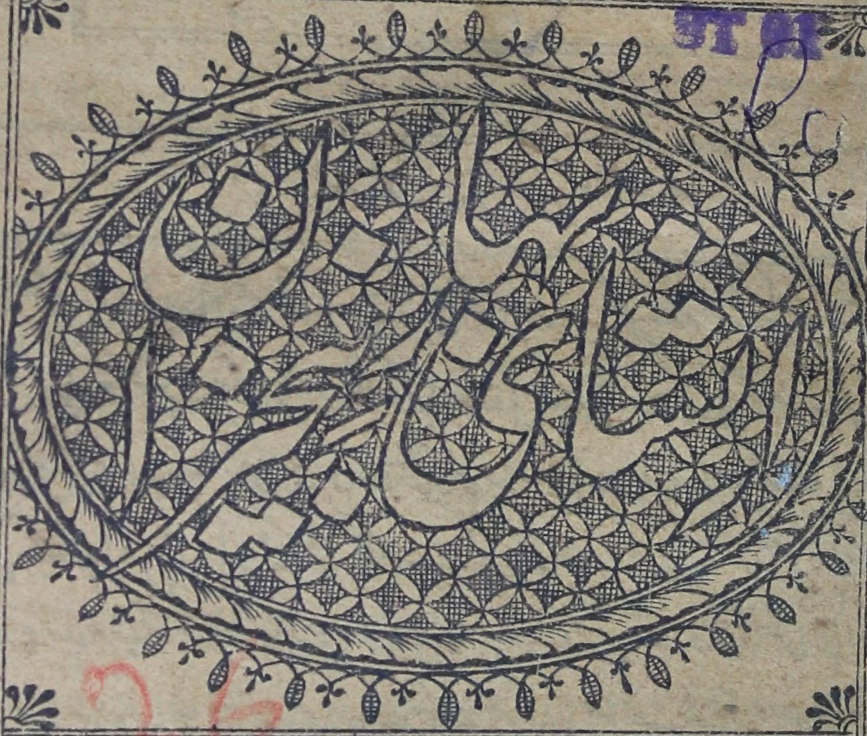 انشای بهار بیخزان